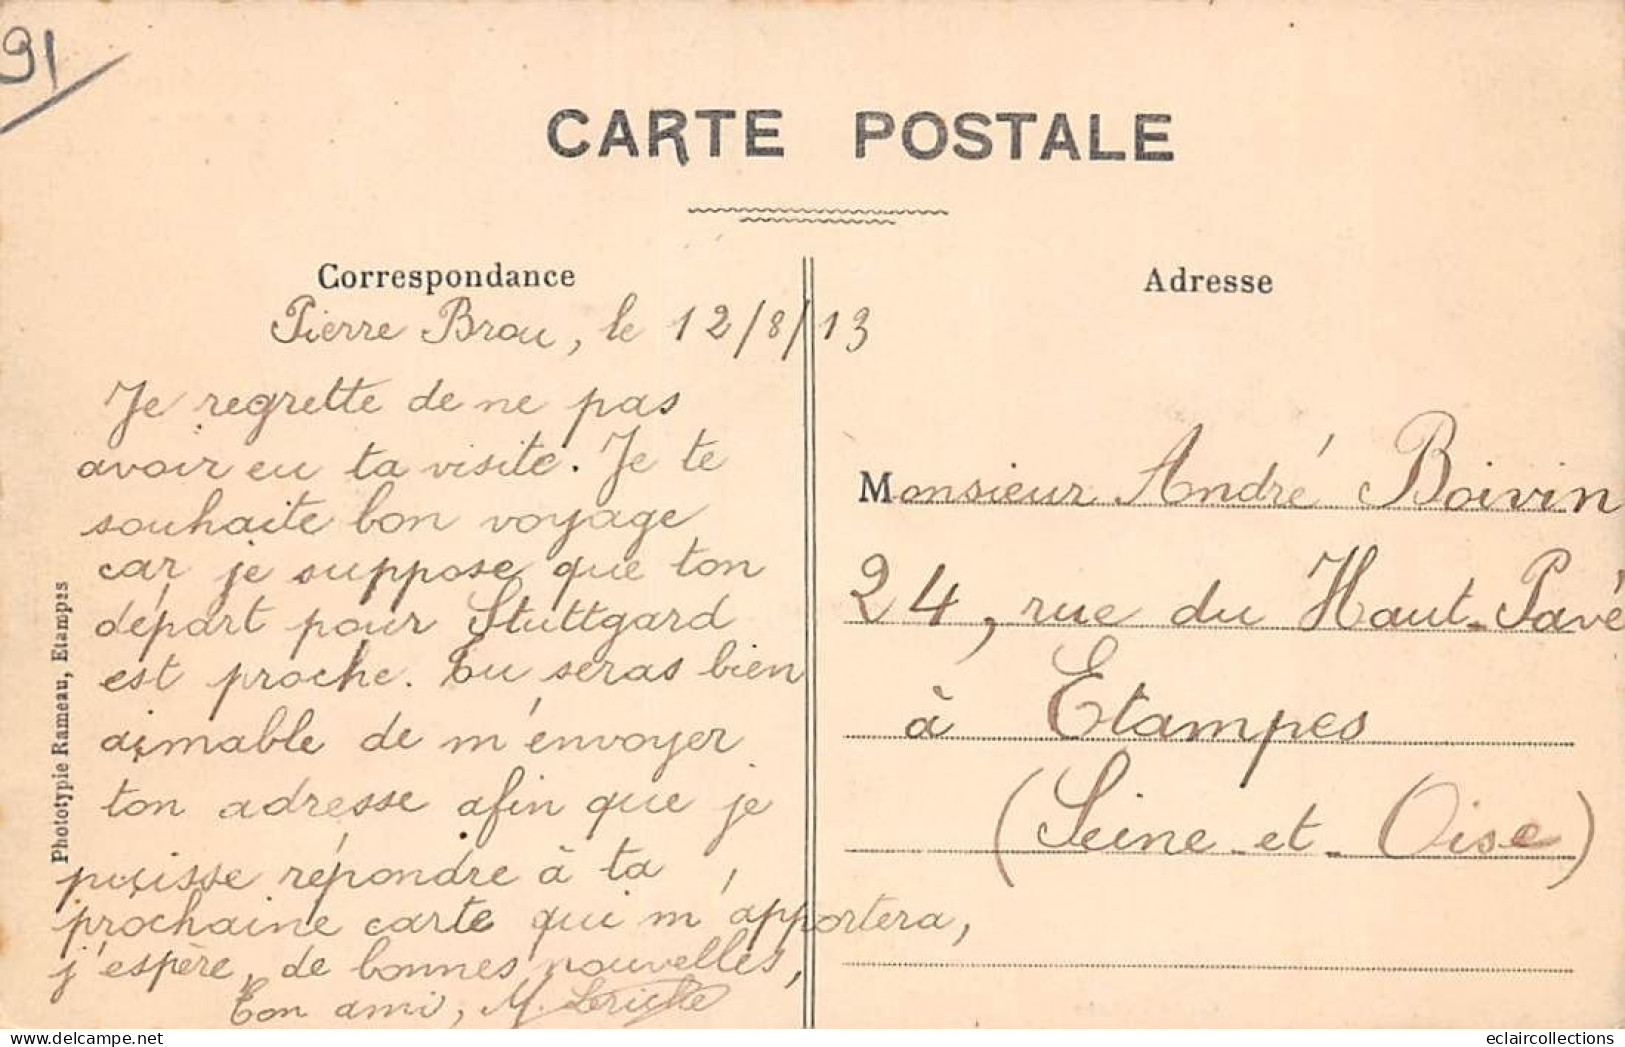 91
CARTE POSTALE
Correspondance
Pierre Brou, le 12/8/13
Je regrette de ne pas
avoir eu ta visite. Je te
souhaite bon voyage
car je suppose que ton
départ pour Stuttgard
est proche. Tu seras bien
aimable de m'envoyer
ton adresse afin que je
puisse répondre à ta
prochaine carte qui m'apportera,
j'espère, de bonnes nouvelles,
Ton ami, M. Leriche
Phototypie Rameau, Etampes
Adresse
Monsieur André Boivin
24, rue du Haut-Pavé
à Etampes
(Seine-et-Oise)
eclaircollections